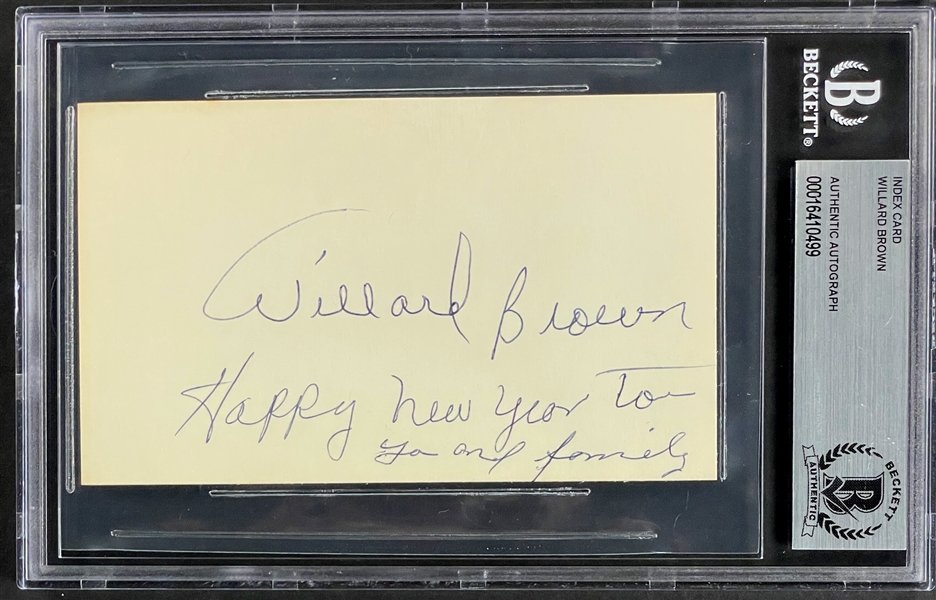 Willard Brown
Happy New Year To
Yo and family
BECKETT®
INDEX CARD
WILLARD BROWN
AUTHENTIC AUTOGRAPH
00016410499
BECKETT
AUTHENTIC